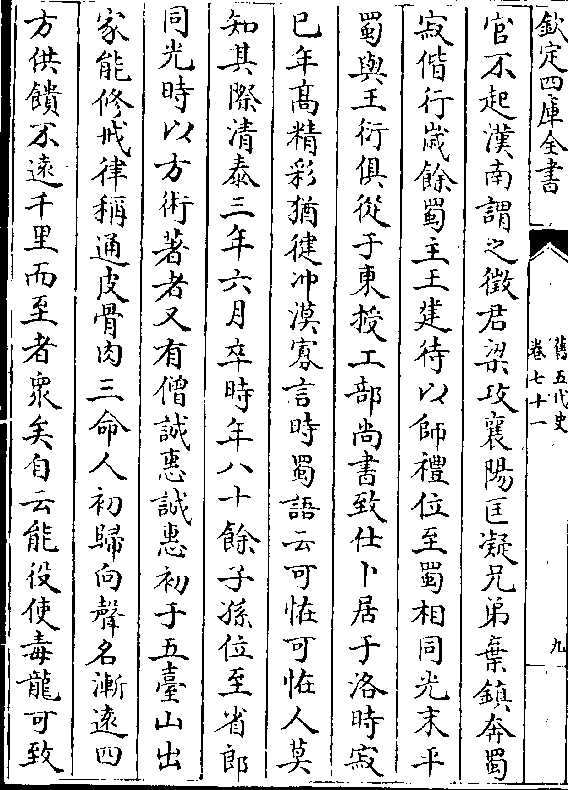 欽定四庫全書
舊五代史
卷七十一
九
官不起漢南謂之徵君梁攻襄陽匡凝兄弟棄鎮奔蜀
寂偕行歲餘蜀主王建待以師禮位至蜀相同光末平
蜀與王衍俱從于東授工部尚書致仕卜居于洛時寂
已年髙精彩猶徤沖漠寡言時蜀語云可怪可怪人莫
知其際清泰三年六月卒時年八十餘子孫位至省郎
同光時以方術著者又有僧誠惠誠惠初于五臺山出
家能修戒律稱通皮骨肉三命人初歸向聲名漸遠四
方供饋不遠千里而至者衆矣自云能役使毒龍可致